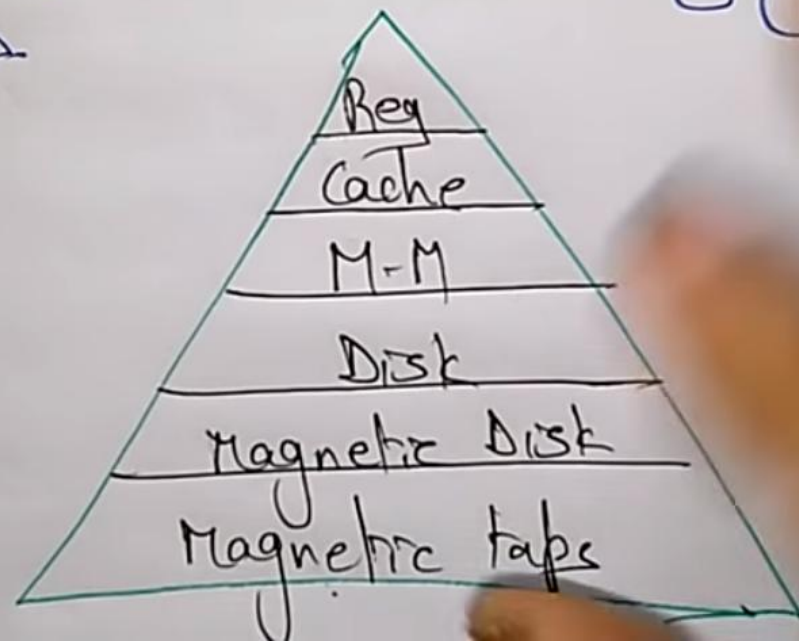 Reg
Cache
M-M
Disk
Magnetic Disk
Magnetic taps